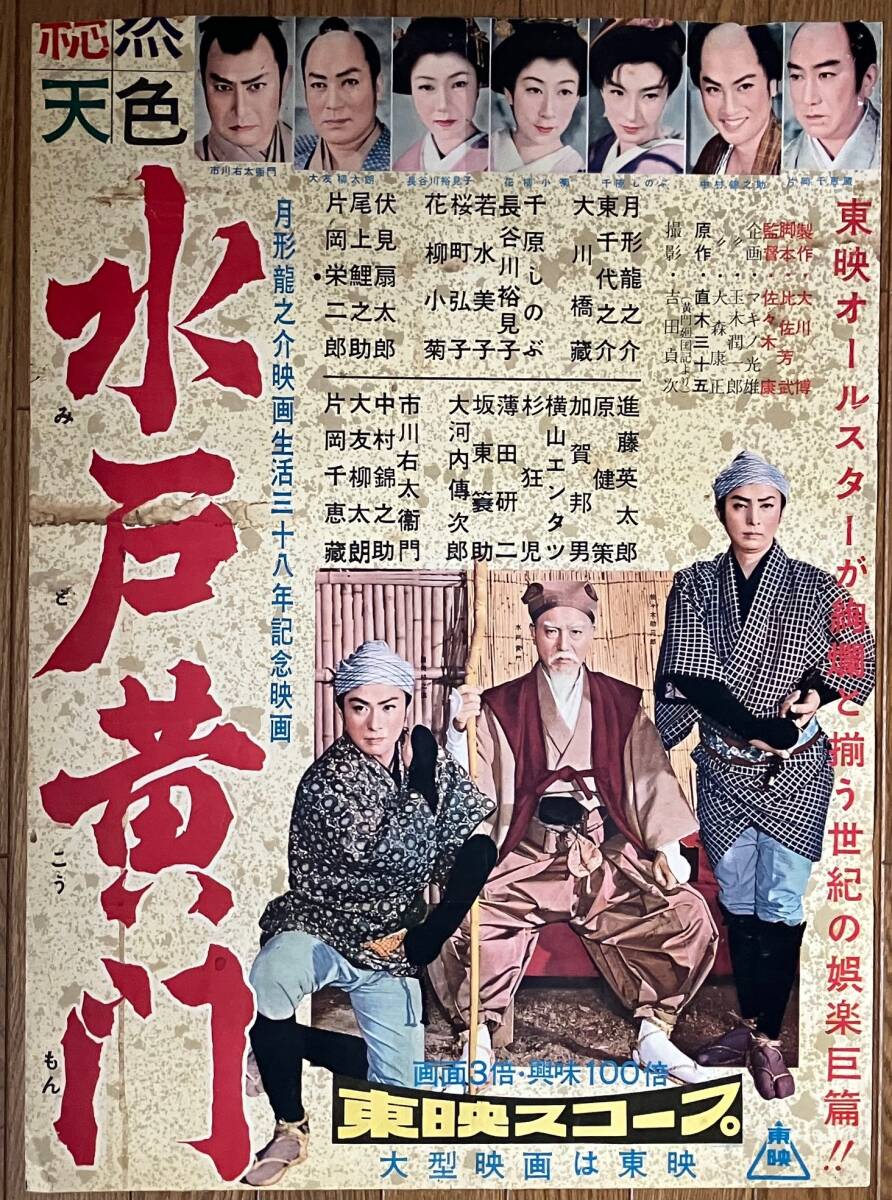 総天然色
市川右太衛門
大友柳太朗
長谷川裕見子
花柳小菊
千原しのぶ
中村錦之助
片岡千恵蔵
東映オールスターが絢爛と揃う世紀の娯楽巨篇!!
製作・大川博
脚本・比佐芳武
監督・佐々木康
企画・マキノ光雄
〃・玉木潤一郎
〃・大森康正
原作・直木三十五
(黄門廻国記より)
撮影・吉田貞次
月形龍之介
東千代之介
大川橋蔵
千原しのぶ
長谷川裕見子
若水美子
桜町弘子
花柳小菊
伏見扇太郎
尾上鯉之助
片岡栄二郎
進藤英太郎
原健策
加賀邦男
横山エンタツ
杉狂児
薄田研二
坂東簑助
大河内傳次郎
市川右太衞門
中村錦之助
大友柳太朗
片岡千恵藏
月形龍之介映画生活三十八年記念映画
水戸黄門
みとこうもん
佐々木助三郎
水戸黄門
画面3倍・興味100倍
東映スコープ。
大型映画は東映
東映